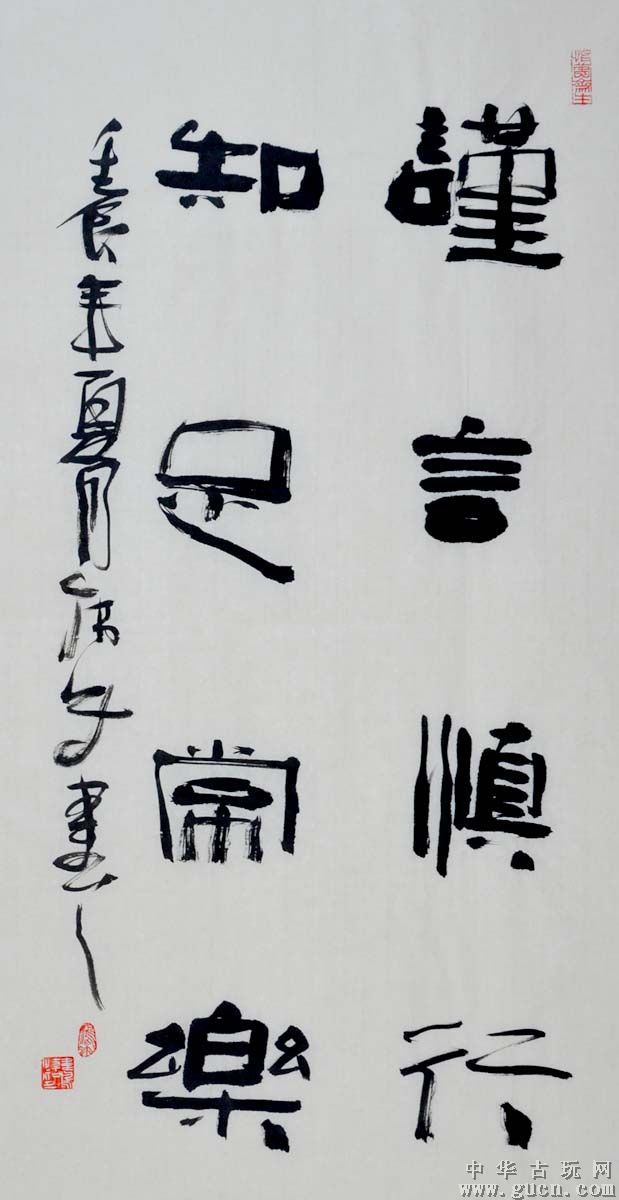 謹言慎行
知足常樂
壬辰年夏月
書
中华古玩网
www.gucn.com